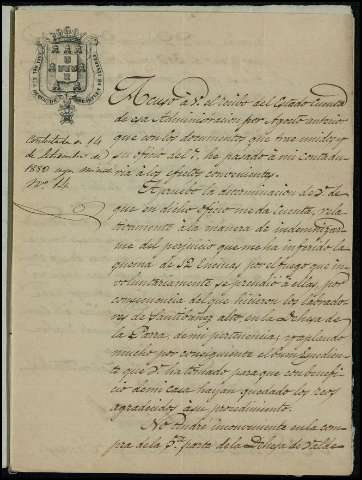 Contestada en 14
de Setiembre de
1880 nº 14.
Acuso á V. el recibo del Estado Cuenta
de esa Administracion por Agosto anterior
que con los documentos que trae unidos y
su oficio del 7, he pasado á mi contadu
ria á los efectos convenientes.
Apruebo la determinacion de V. de
que en dicho oficio me da cuenta, rela
tivamente á la manera de indemnizar
me del perjuicio que me ha inferido la
quema de 52 Encinas, por el fuego que in
voluntariamente se prendió á ellas, por
consecuencia del que hicieron los labrado
res de Santibañez alto en la Dehesa de
la Parra, de mi pertenencia; y aplaudo
mucho por consiguiente el buen espedien
te que V. ha tomado para que con benefi
cio de mi casa hayan quedado los reos
agradecidos á su procedimiento.
No tendré inconveniente en la com
pra de la 3ª parte de la Dehesa de Valde